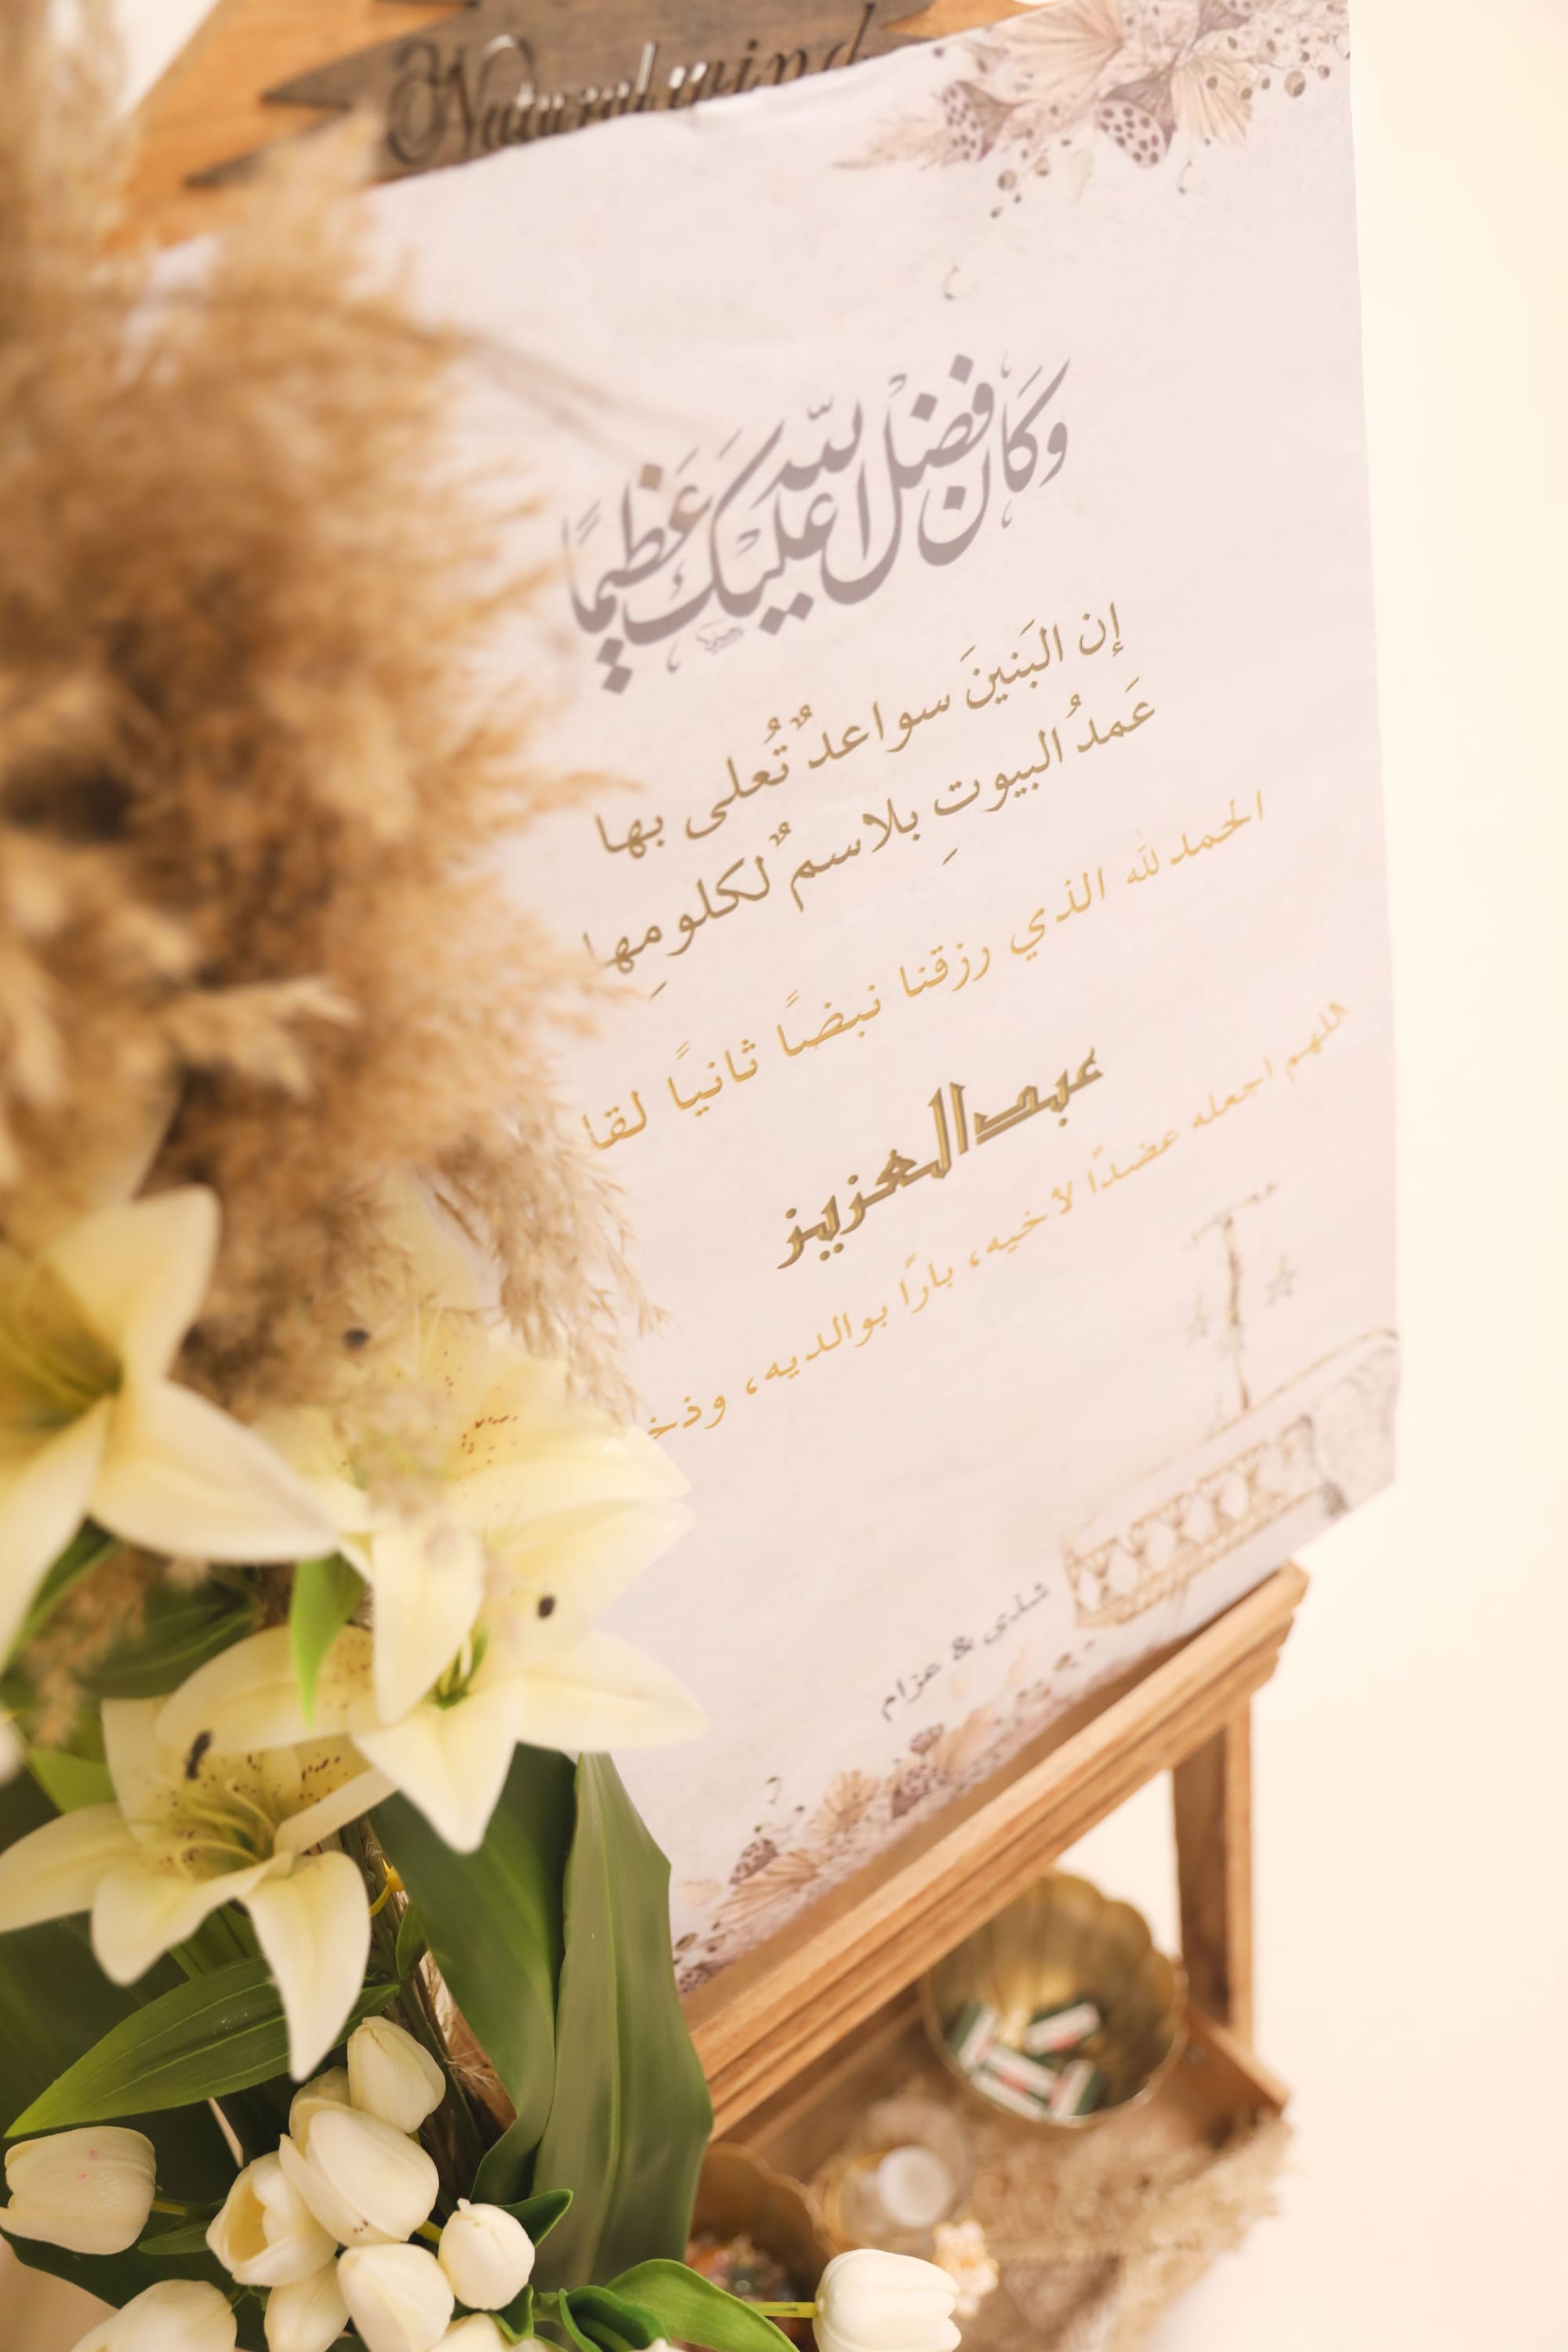 Natural mind
وَكَانَ فَضْلُ اللَّهِ عَلَيْكَ عَظِيمًا
إن البَنينَ سواعدٌ تُعلى بها
عَمدُ البيوتِ بلاسمٌ لكلومِها
الحمد لله الذي رزقنا نبضًا ثانيًا لقا
عبدالعزيز
اللهم اجعله عضدًا لأخيه، بارًا بوالديه، وذخ
شذى & عزام